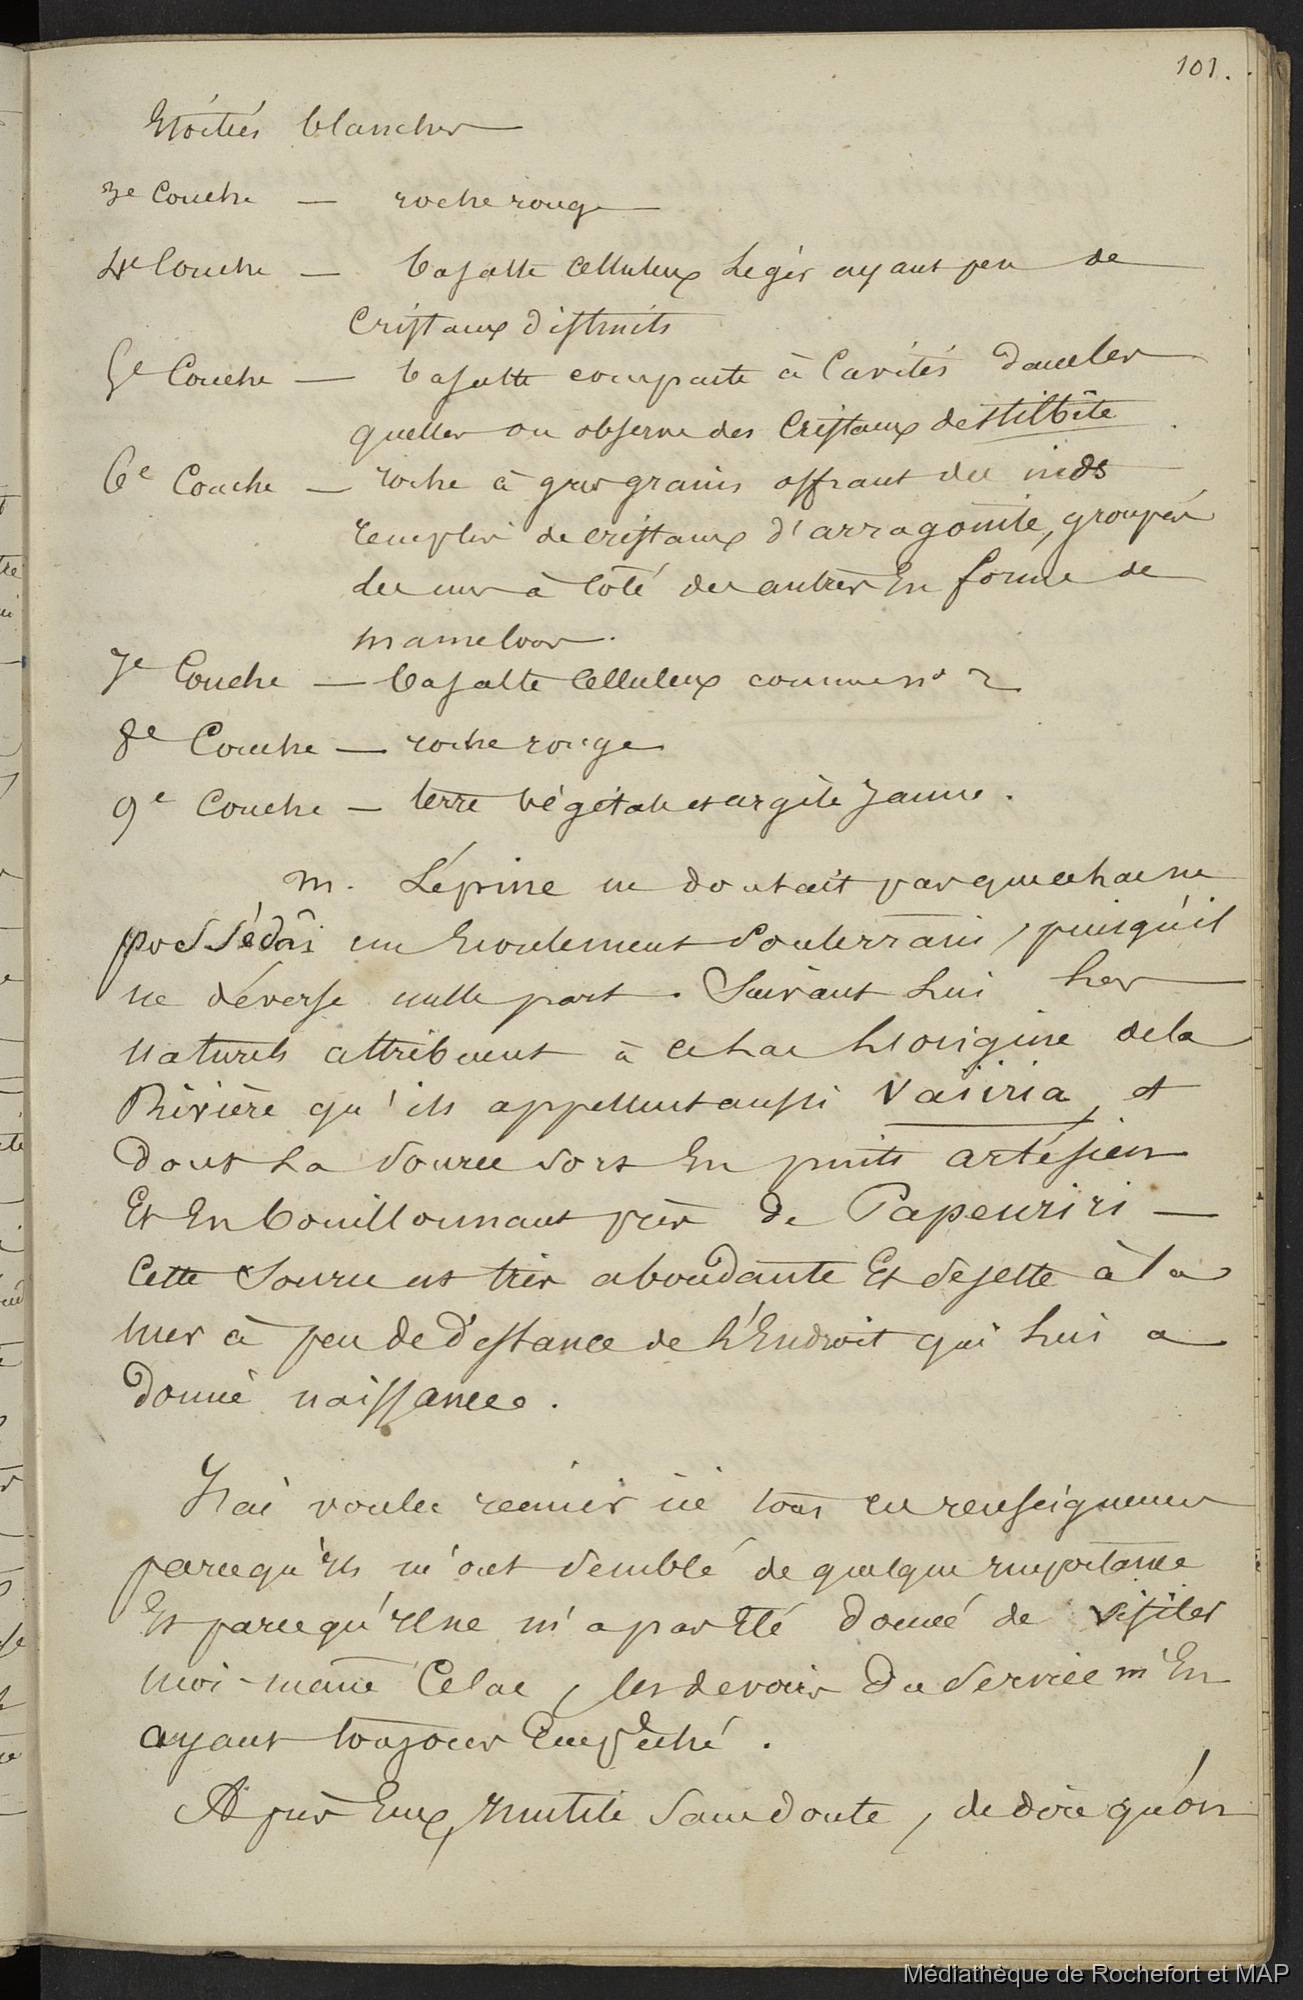 101.
Etoilées blanches
3e Couche — roche rouge
4e Couche — basalte celluleux léger ayant peu de
Cristaux distincts
5e Couche — basalte compacte à Cavités dans les
quelles on observe des Cristaux de stilbite
6e Couche — roche à gros grains offrant des nids
remplis de cristaux d'arragonite, groupés
les uns à Côté des autres En forme de
mamelons.
7e Couche — basalte Celluleux comme no 2
8e Couche — roche rouge
9e Couche — terre végétale et argile jaune.
M. Lépine ne doutait pas que ce lac ne
possédât un Ecoulement souterrain, puisqu'il
ne déverse nulle part. Suivant lui les
naturels attribuent à ce lac l'origine de la
Rivière qu'ils appellent aussi Vaïria, et
dont la source sort En puits artésien
Et En bouillonnant près de Papeuriri —
Cette source est très abondante Et se jette à la
mer à peu de distance de l'Endroit qui lui a
donné naissance.
J'ai voulu réunir ici tous ces renseignemens
parcequ'ils m'ont semblé de quelque importance
Et parcequ'il ne m'a pas Eté donné de visiter
moi-même Ce lac, les devoirs du service m'En
ayant toujours Empêché.
Après Eux, inutile sans doute, de dire qu'on
Médiathèque de Rochefort et MAP